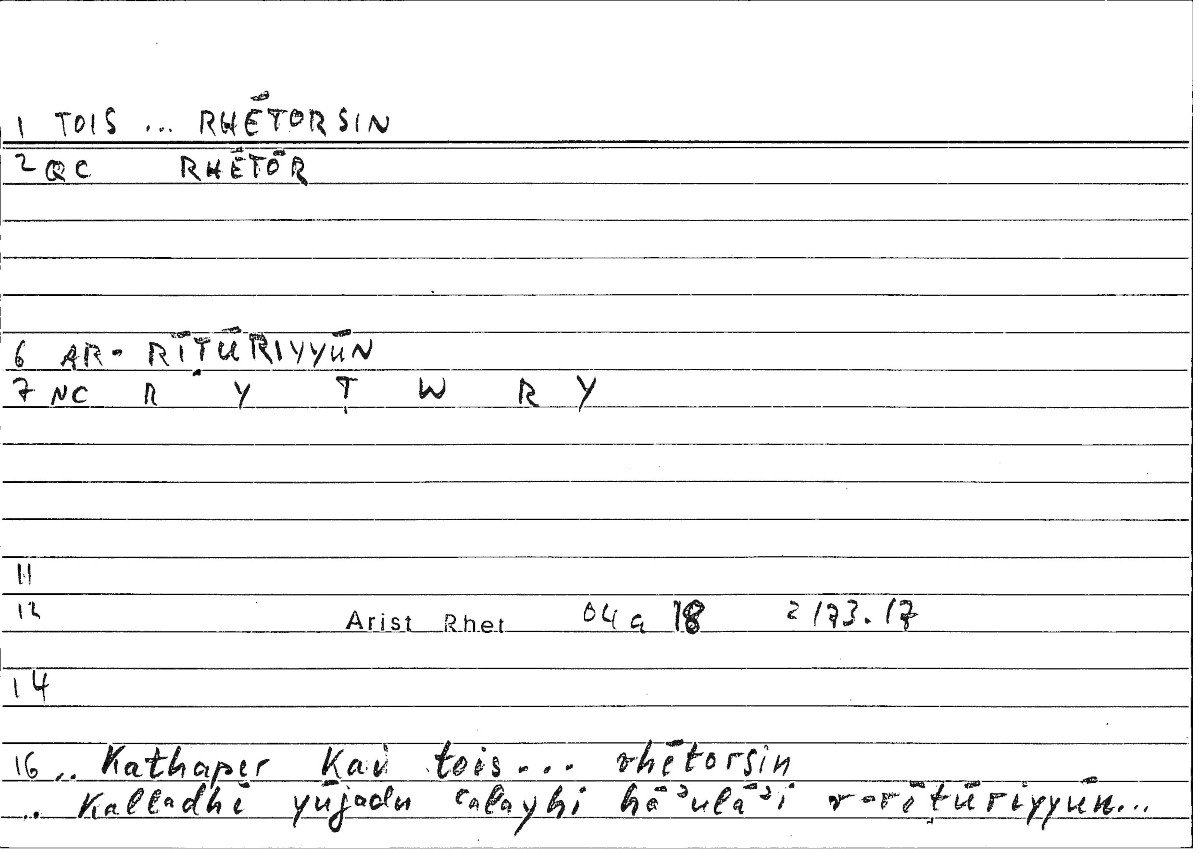 1 TOIS ... RHĒTORSIN
2 QC RHĒTŌR
6 AR- RĪṬŪRIYYŪN
7 NC R Y Ṭ W R Y
11
12 Arist Rhet 04a 18 2 173.17
14
16 .. Kathaper kai tois... rhētorsin
.. Kalladhī yūjadu ʿalayhi hāʾulāʾi r-rīṭūriyyūn...